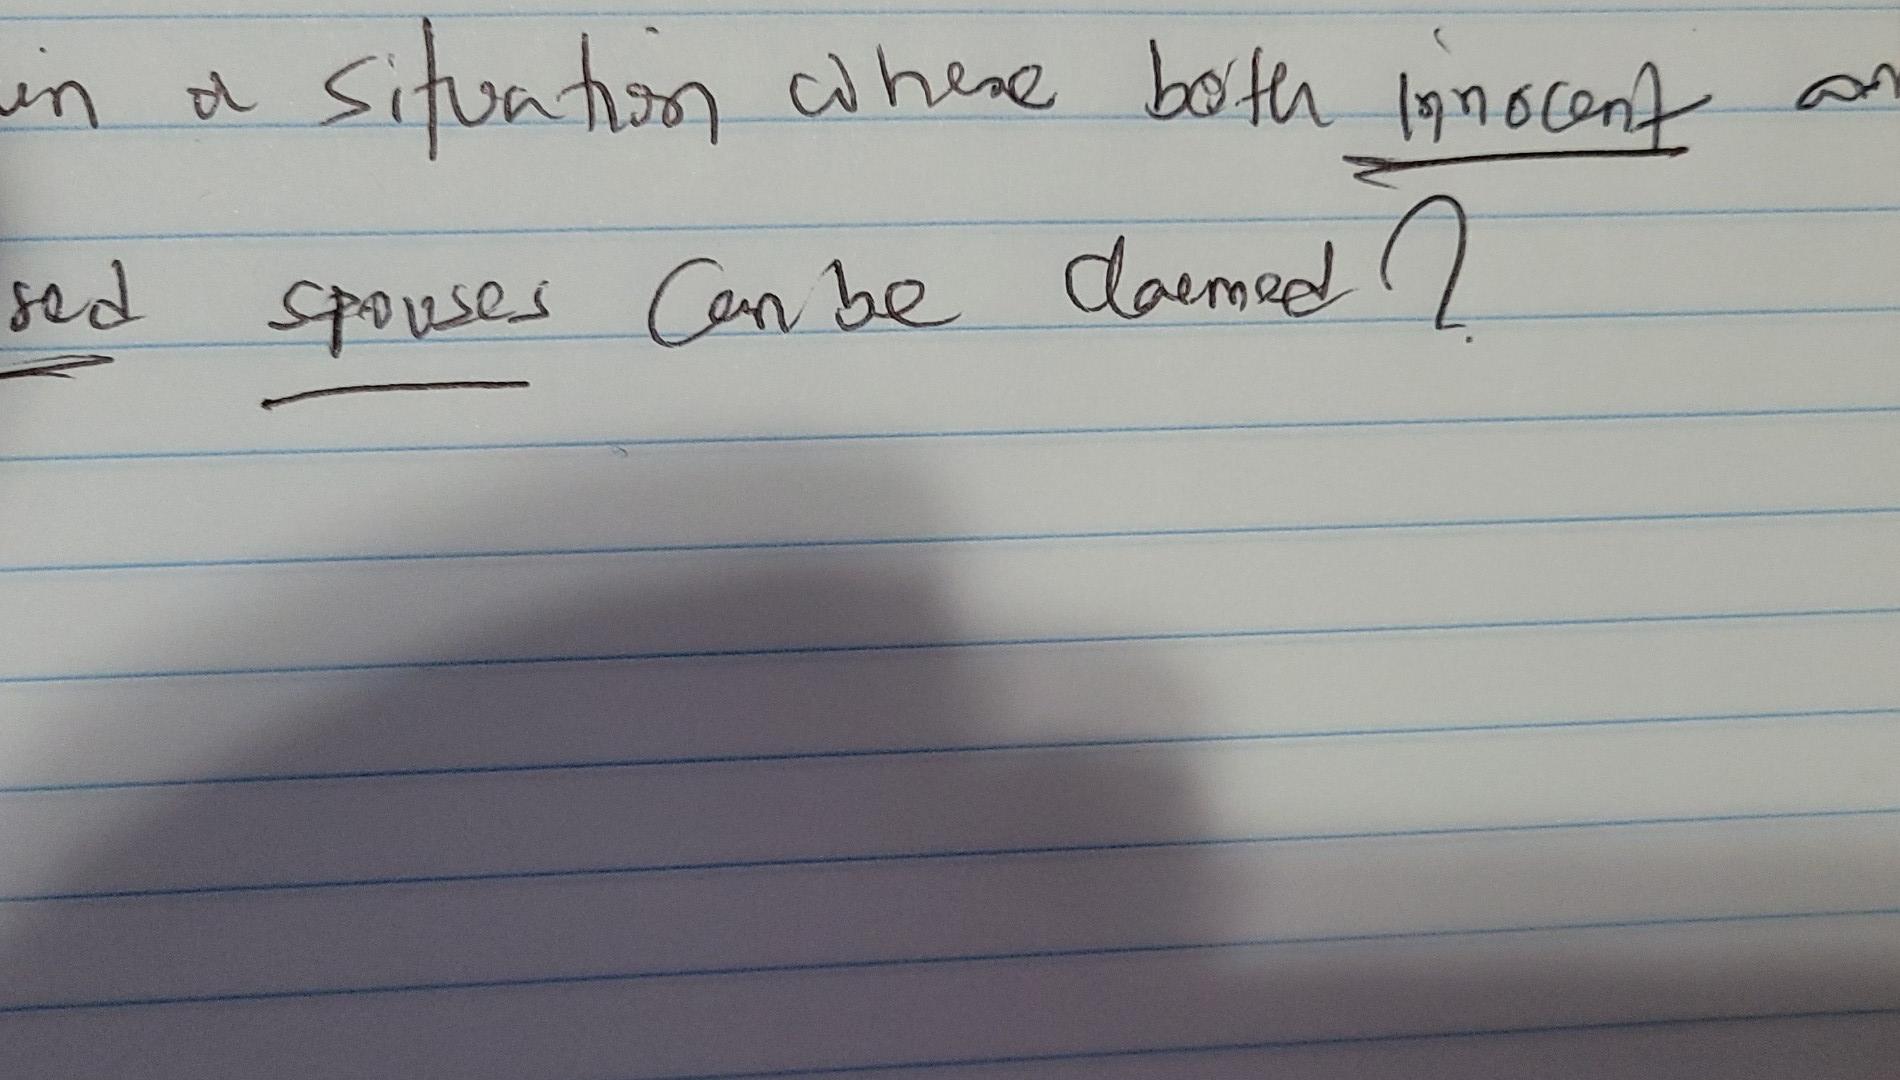 in a situation where both innocent an
sed spouses can be claemed?